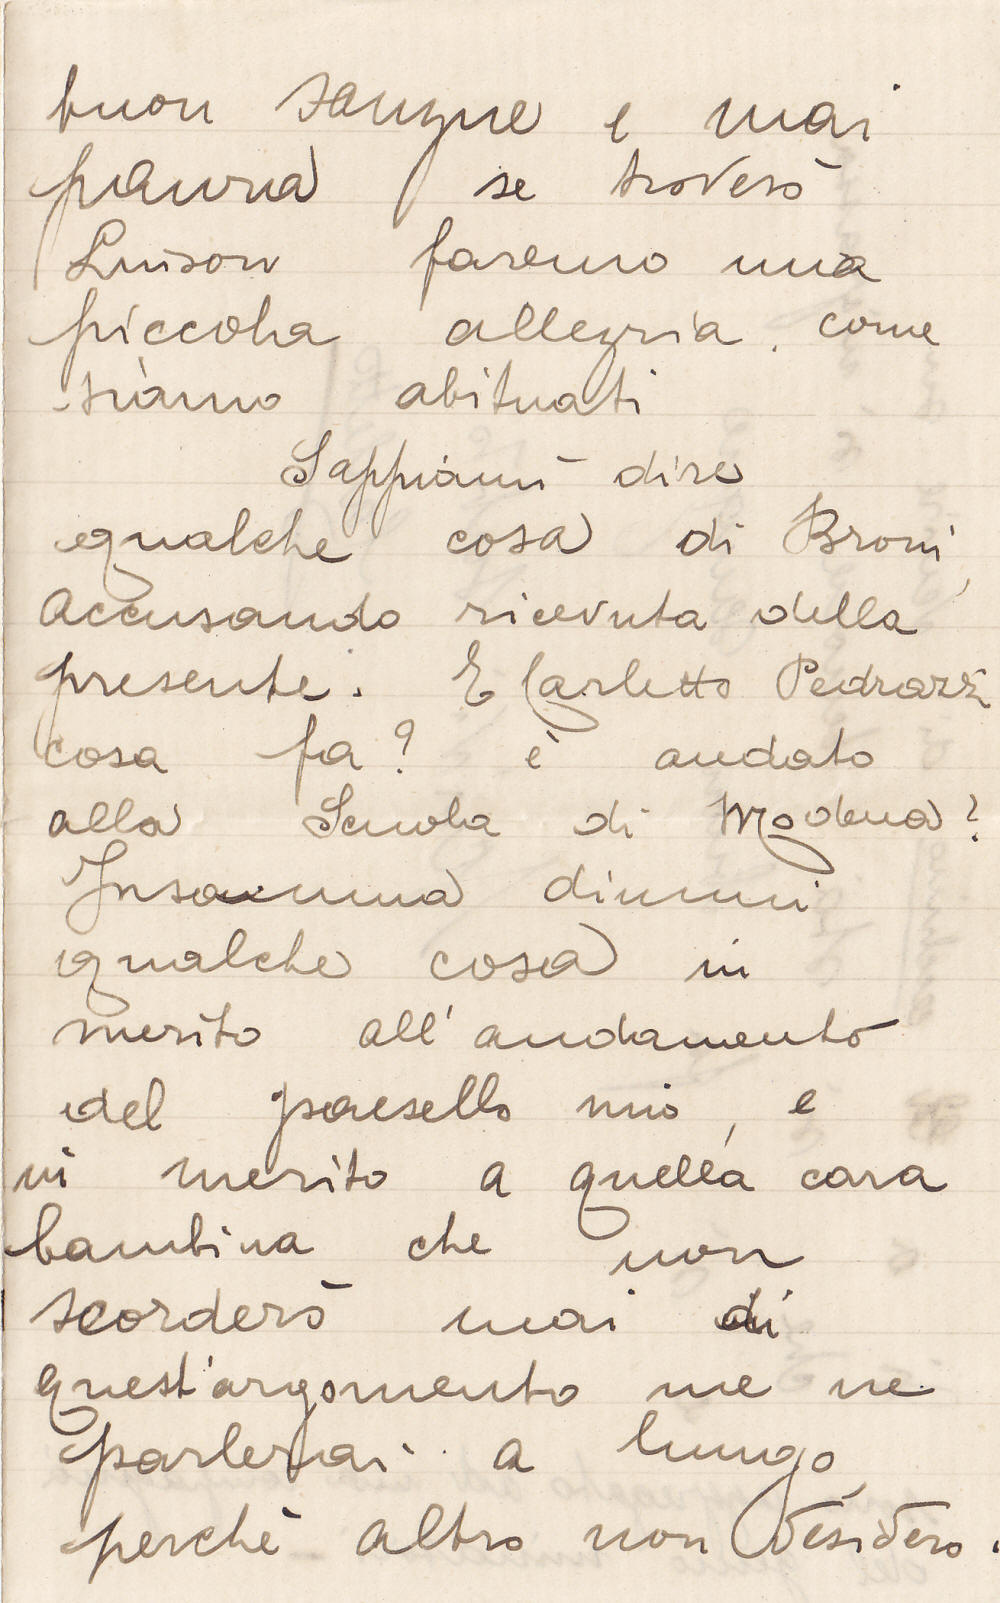 buon sangue e mai
paura se troverò
Luison faremo una
piccola allegria, come
siamo abituati
Sappiami dire
qualche cosa di Broni,
accusando ricevuta della
presente. E Carletto Pedrazzi
cosa fa? è andato
alla Scuola di Modena?
Insomma dimmi
qualche cosa in
merito all'andamento
del paesello mio, e
in merito a quella cara
bambina che non
scorderò mai di
quest'argomento me ne
parlerai a lungo,
perchè altro non desidero.